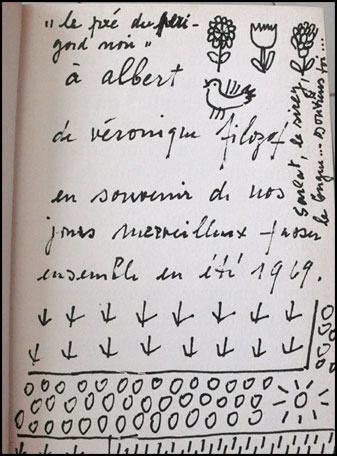 "le pré du péri-
gord noir"
à albert
de véronique filozof
en souvenir de nos
jours merveilleux passer
ensemble en été 1969.
Sarlat, le
la